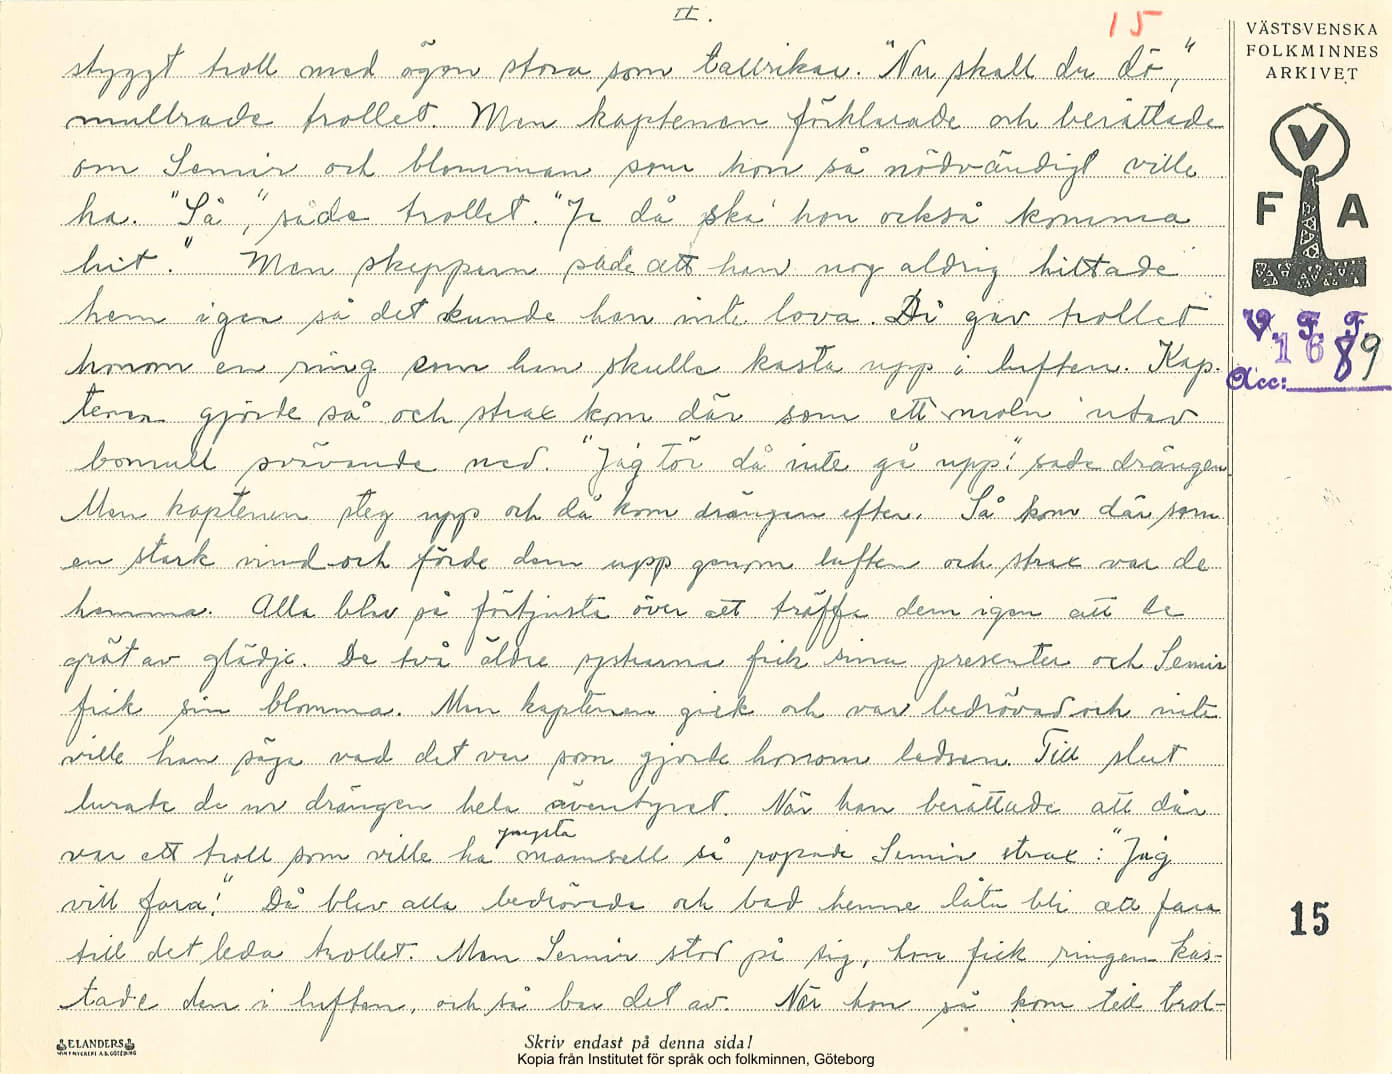 II.
15
styggt troll med ögon stora som tallrikar. "Nu skall du dö",
mullrade trollet. Men kaptenen förklarade och berättade
om Semir och blomman som hon så nödvändigt ville
ha. "Så", sade trollet. "Ja då ska' hon också komma
hit." Men skepparn sade att han nog aldrig hittade
hem igen så det kunde han inte lova. Då gav trollet
honom en ring som han skulle kasta upp i luften. Kap-
tenen gjorde så och strax kom där som ett moln utav
bomull svävande ned. "Jag tör då inte gå upp!" sade drängen.
Men kaptenen steg upp och då kom drängen efter. Så kom där som
en stark vind och förde dem upp genom luften och strax var de
hemma. Alla blev så förtjusta över att träffa dem igen att de
grät av glädje. De två äldre systrarna fick sina presenter och Semir
fick sin blomma. Men kaptenen gick och var bedrövad och inte
ville han säga vad det var som gjorde honom ledsen. Till slut
lurade de ur drängen hela äventyret. När han berättade att där
var ett troll som ville ha yngsta mamsell så ropade Semir strax: "Jag
vill fara!" Då blev alla bedrövade och bad henne låta bli att fara
till det leda trollet. Men Semir stod på sig, hon fick ringen kas-
tade den i luften, och så bar det av. När hon så kom till trol-
VÄSTSVENSKA
FOLKMINNES
ARKIVET
V
F A
V. F. F.
1689
Acc:
15
ELANDERS
Skriv endast på denna sida!
Kopia från Institutet för språk och folkminnen, Göteborg